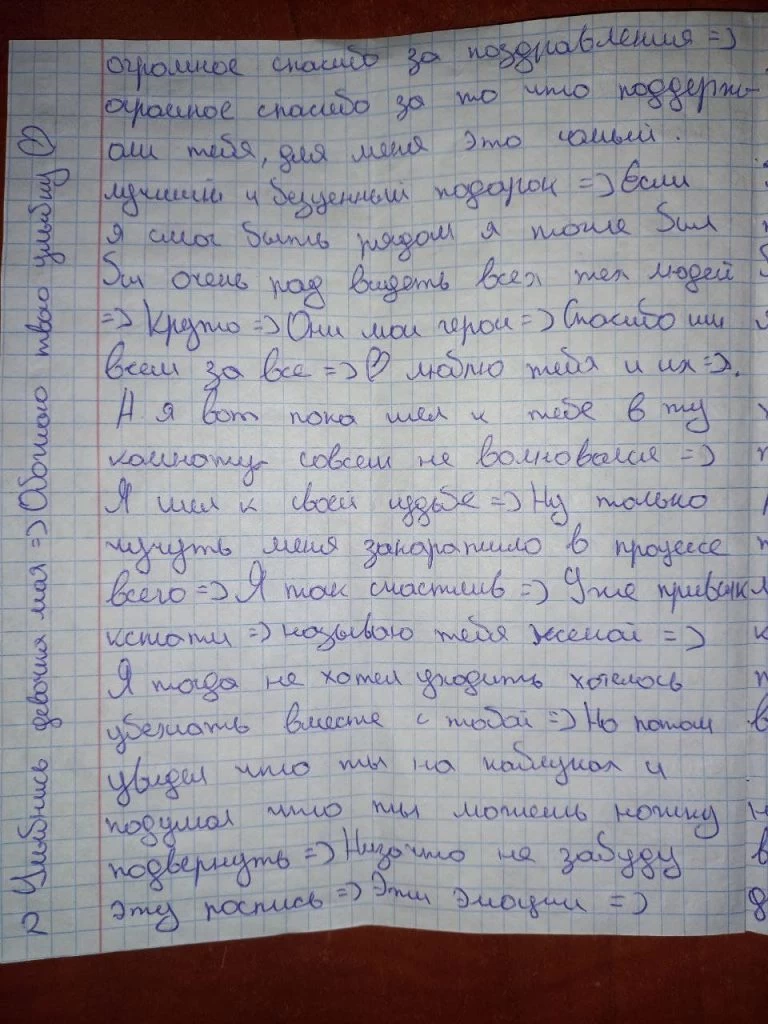 огромное спасибо за поздравления =)
огромное спасибо за то что поддерж-
али тебя, для меня это самый
лучший и безценный подарок =) Если
я смог быть рядом я тоже был
бы очень рад видеть всех тех людей
=) Круто =) Они мои герои =) Спасибо им
всем за все =) ♡ люблю тебя и их =).
А я вот пока шел к тебе в ту
комнату совсем не волновался =)
Я шел к своей судьбе =) Ну только
чучуть меня запарапило в процессе
всего =) Я так счастлив =) Уже привык
кстати =) называю тебя женой =)
Я тогда не хотел уходить хотелось
убежать вместе с тобой =) Но потом
увидел что ты на каблуках и
подумал что ты можешь ножку
подвернуть =) Низачто не забуду
эту роспись =) Эти эмоции =)
2 Улыбнись девочка моя =) Обожаю твою улыбку ♡